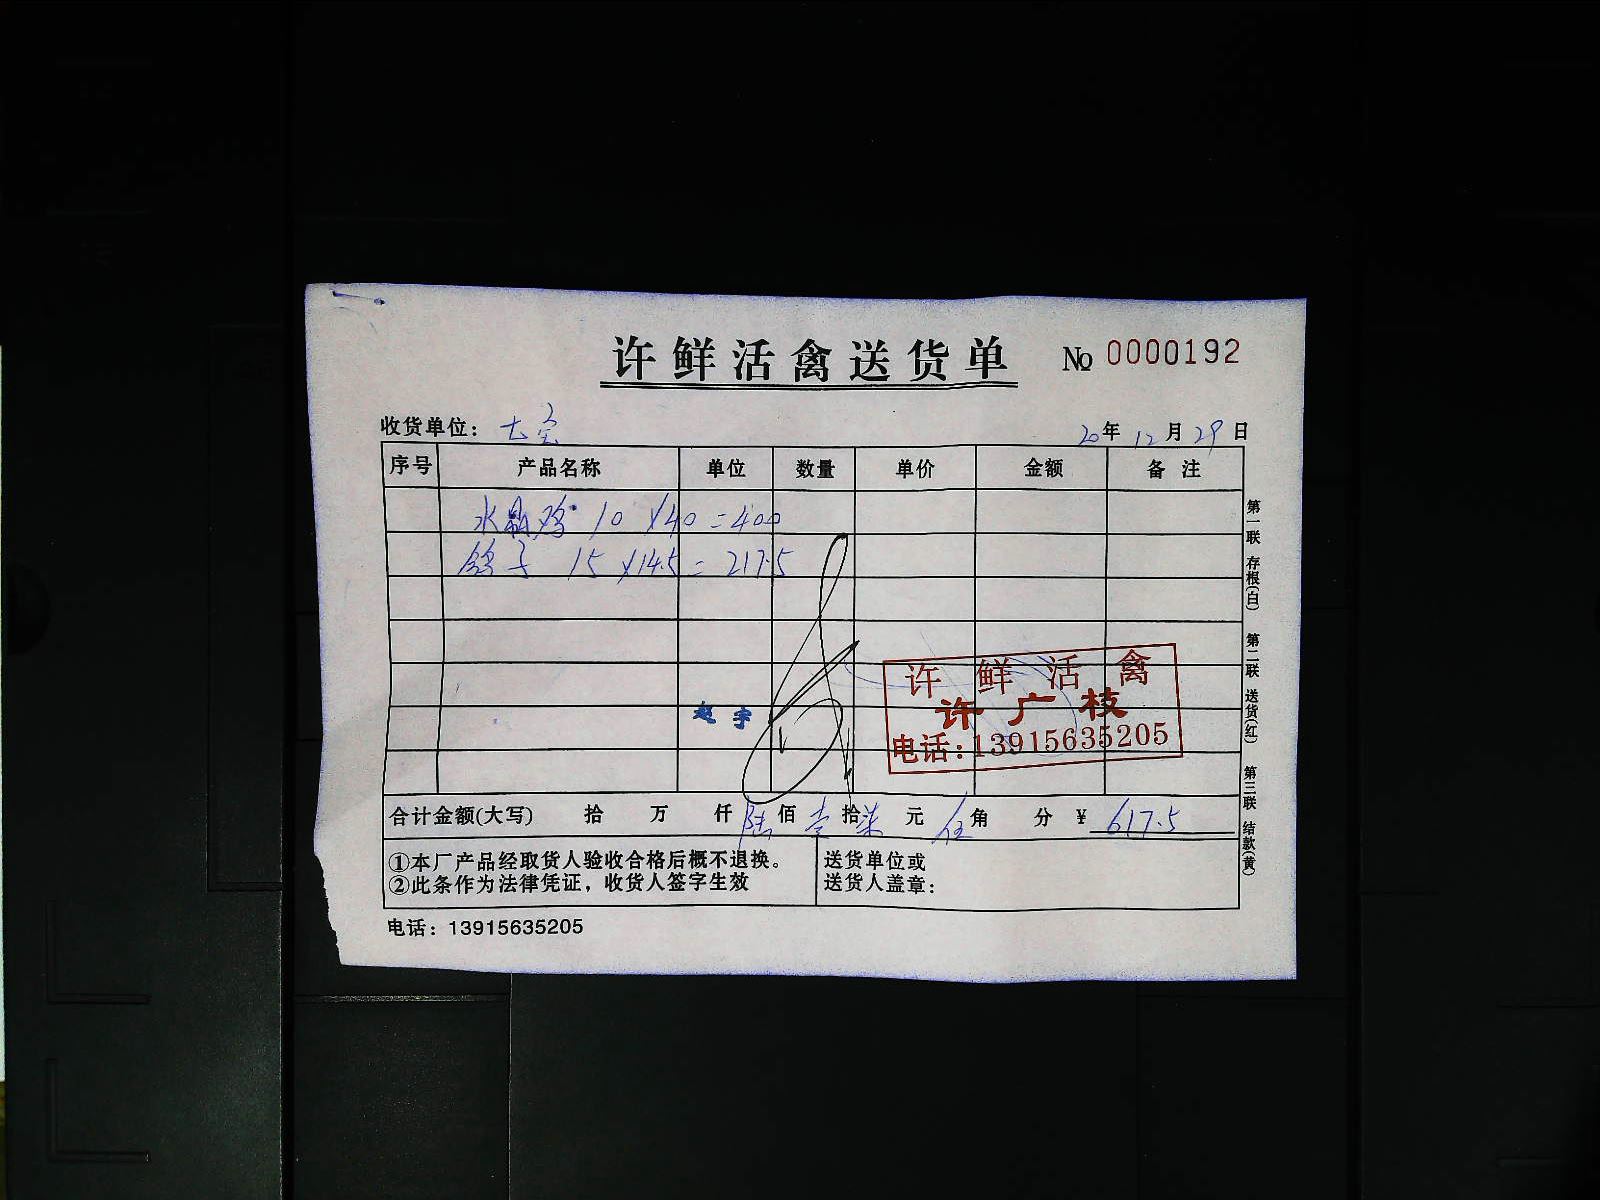 许鲜活禽送货单 № 0000192
收货单位: 七宝 20年 12月 29日
序号 产品名称 单位 数量 单价 金额 备注
水晶鸡 10 ×40 = 400
鸽子 15 ×14.5 = 217.5
许鲜活禽
许广枝
电话:13915635205
赵宇
合计金额(大写) 拾 万 仟 陆佰 壹拾柒元 伍角 分 ¥ 617.5
①本厂产品经取货人验收合格后概不退换。
②此条作为法律凭证，收货人签字生效
送货单位或
送货人盖章:
电话: 13915635205
第一联 存根(白) 第二联 送货(红) 第三联 结款(黄)